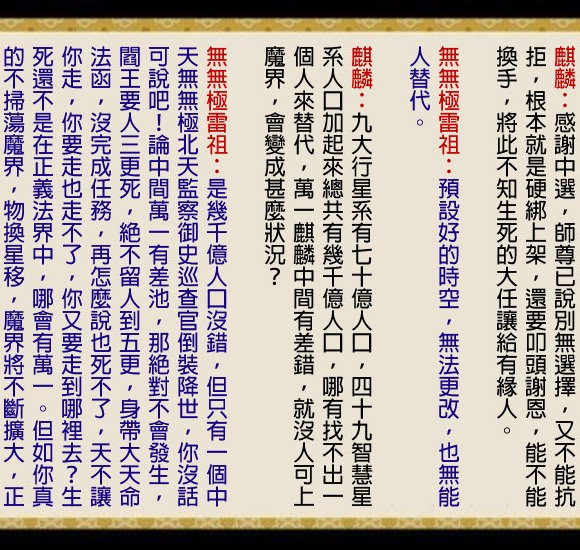 麒麟：感謝中選，師尊已說別無選擇，又不能抗
拒，根本就是硬綁上架，還要叩頭謝恩，能不能
換手，將此不知生死的大任讓給有緣人。
無無極雷祖：預設好的時空，無法更改，也無能
人替代。
麒麟：九大行星系有七十億人口，四十九智慧星
系人口加起來總共有幾千億人口，哪有找不出一
個人來替代，萬一麒麟中間有差錯，就沒人可上
魔界，會變成甚麼狀況？
無無極雷祖：是幾千億人口沒錯，但只有一個中
天無無極北天監察御史巡查官倒裝降世，你沒話
可說吧！論中間萬一有差池，那絕對不會發生，
閻王要人三更死，絕不留人到五更，身帶大天命
法函，沒完成任務，再怎麼說也死不了，天不讓
你走，你要走也走不了，你又要走到哪裡去？生
死還不是在正義法界中，哪會有萬一。但如你真
的不掃蕩魔界，物換星移，魔界將不斷擴大，正